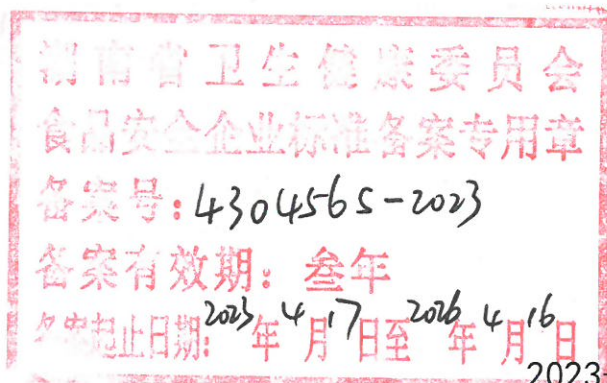 湖南省卫生健康委员会
食品安全企业标准备案专用章
备案号:4304565-2023
备案有效期:叁年
备案起止日期:2023年4月17日至2026年4月16日
2023-